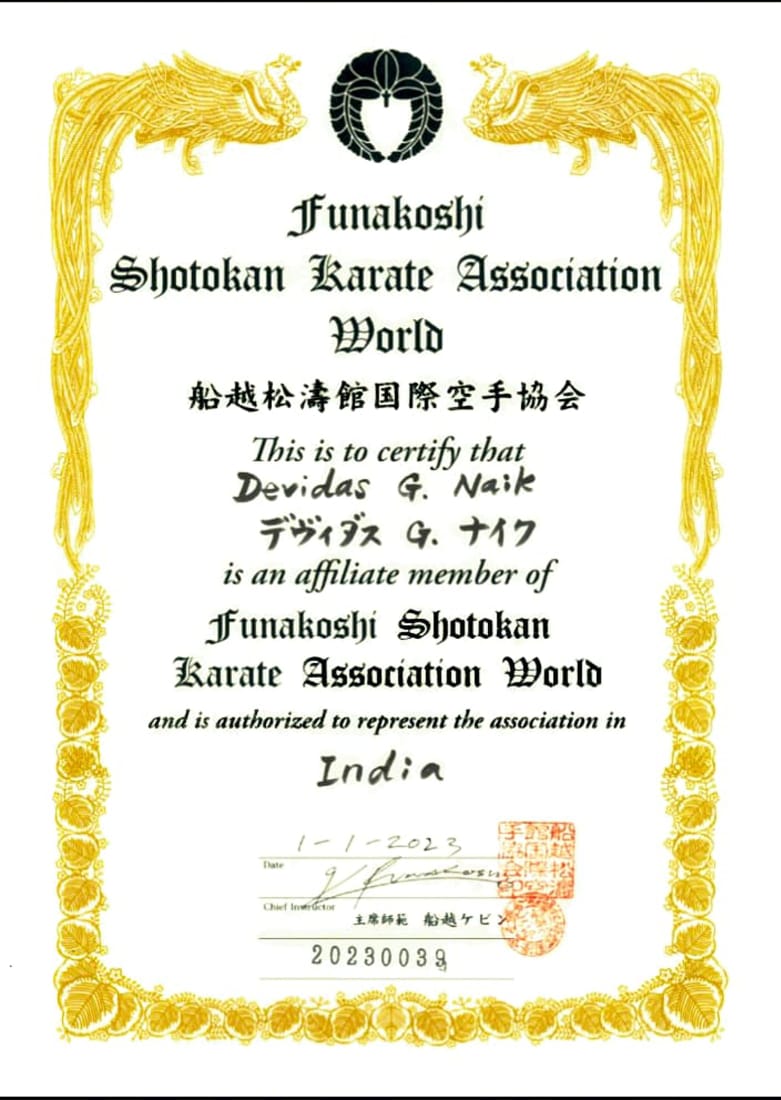 Funakoshi
Shotokan Karate Association
World
船越松濤館国際空手協会
This is to certify that
Devidas G. Naik
デヴィダス G. ナイク
is an affiliate member of
Funakoshi Shotokan
Karate Association World
and is authorized to represent the association in
India
1-1-2023
Date
Funakoshi
Chief Instructor
主席師範 船越ケビン
20230039
船越松濤館国際空手協会印